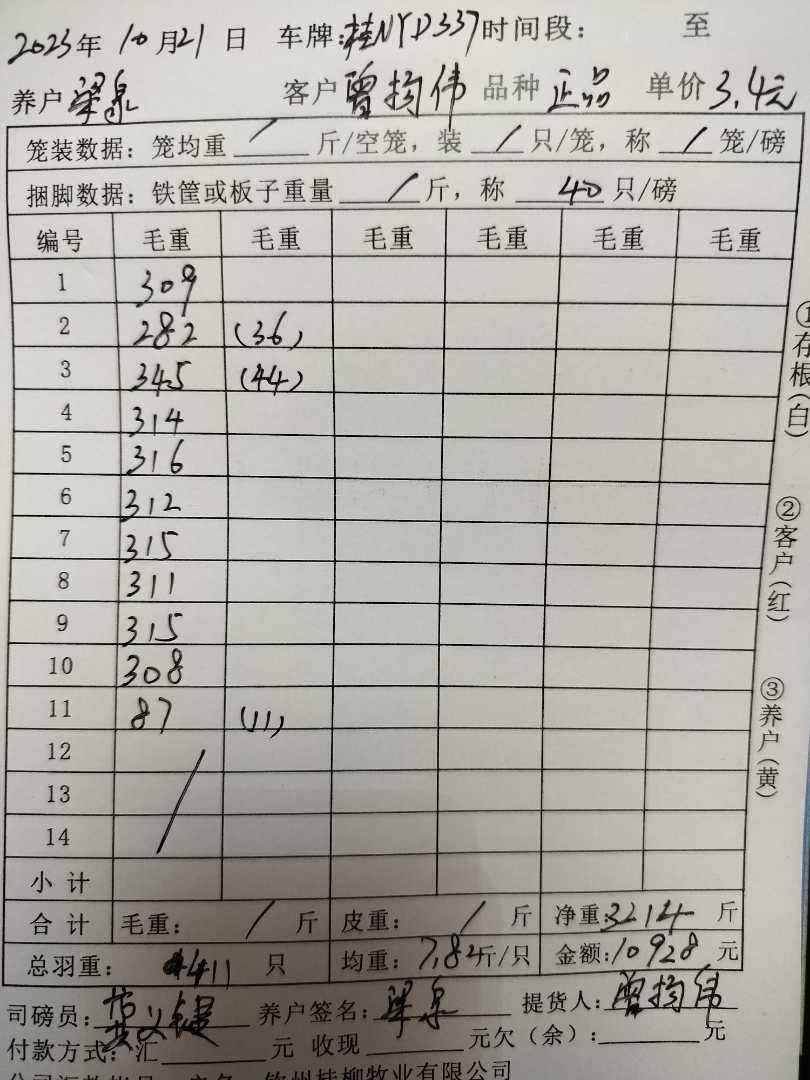 2023年 10月21日 车牌:桂NYD337 时间段: 至
养户 梁泉 客户 曾搊伟 品种 正品 单价 3.4元
笼装数据: 笼均重 / 斤/空笼, 装 / 只/笼, 称 / 笼/磅
捆脚数据: 铁筐或板子重量 / 斤, 称 40 只/磅
编号 毛重 毛重 毛重 毛重 毛重 毛重
1 309
2 282 (36)
3 345 (44)
4 314
5 316
6 312
7 315
8 311
9 315
10 308
11 87 (11)
12
13
14
小计
合计 毛重: / 斤 皮重: / 斤 净重:3214 斤
总羽重: 411 只 均重: 7.82斤/只 金额:10928 元
司磅员: 养户签名: 梁泉 提货人: 曾搊伟
付款方式: 汇 元 收现 元欠(余): 元
①存根(白)
②客户(红)
③养户(黄)